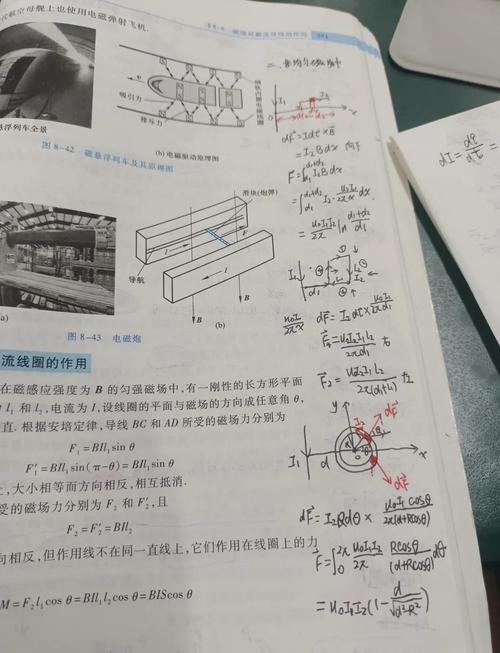 代航空母舰上也使用电磁弹射飞机.
§8-6 磁场对载流导线的作用
悬浮列车全景
吸引力
推斥力
(b) 电磁驱动原理图
图 8-42 磁悬浮列车及其原理图
滑块(炮弹)
导航
I
I
F
B
B
(a)
(b)
图 8-43 电磁炮
流线圈的作用
在磁感应强度为 B 的匀强磁场中,有一刚性的长方形平面
l₁ 和 l₂,电流为 I,设线圈的平面与磁场的方向成任意角 θ,
直. 根据安培定律,导线 BC 和 AD 所受的磁场力分别为
F₁ = BIl₁ sin θ
F₁′ = BIl₁ sin(π-θ) = BIl₁ sin θ
上,大小相等而方向相反,相互抵消.
受的磁场力分别为 F₂ 和 F₂′,且
F₂ = F₂′ = BIl₂
向相反,但作用线不在同一直线上,它们作用在线圈上的力
M = F₂l₁cos θ = BIl₁l₂cos θ = BIScos θ
I₁
I₂
x
dF = Idl × B
= I₂Bdx
F = ∫ I₂Bdx
= ∫ I₂ · μ₀I₁/2πx dx
= μ₀I₁I₂/2π ln d₁+d₂/d₁
I₁
d₁
I₂
μ₀I₁/2πx
dF = I₂dl × μ₀I₁/2πx
= μ₀I₁I₂l₂/2πd₁ 右
F₂ = μ₀I₁I₂l₂/2π(d₁+l₁) 左
y
dF
I₁
d
R
x
dF
dF = I₂Rdθ × μ₀I₁cosθ/2π(d+Rcosθ)
F = ∫₀²π μ₀I₁I₂/2π Rcosθ/(d+Rcosθ) dθ
= μ₀I₁I₂(1 - d/√d²-R²)
dI = dq/dt =